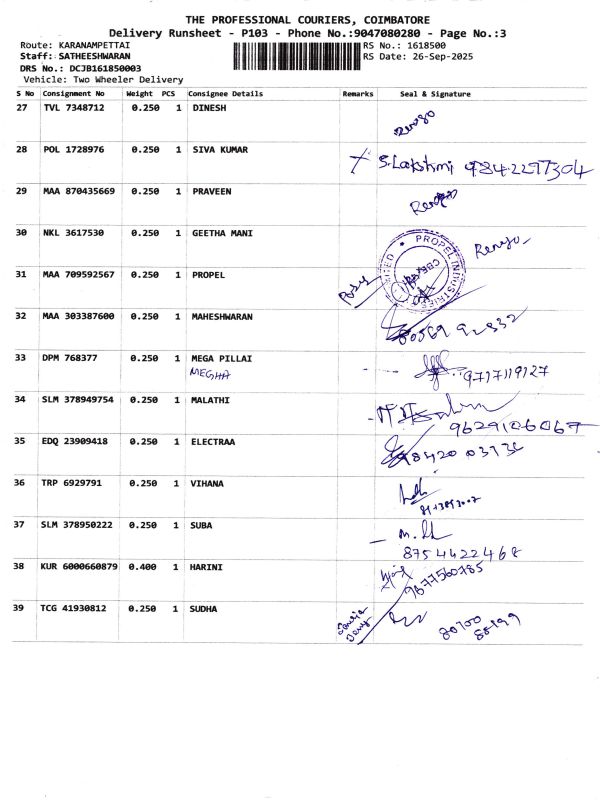 THE PROFESSIONAL COURIERS, COIMBATORE
Delivery Runsheet - P103 - Phone No.:9047080280 - Page No.:3
Route: KARANAMPETTAI RS No.: 1618500
Staff: SATHEESHWARAN RS Date: 26-Sep-2025
DRS No.: DCJB161850003
Vehicle: Two Wheeler Delivery
S No Consignment No Weight PCS Consignee Details Remarks Seal & Signature
27 TVL 7348712 0.250 1 DINESH
28 POL 1728976 0.250 1 SIVA KUMAR S.Lakshmi 9842297304
29 MAA 870435669 0.250 1 PRAVEEN
30 NKL 3617530 0.250 1 GEETHA MANI
PROPEL INDUSTRIES
31 MAA 709592567 0.250 1 PROPEL
32 MAA 303387600 0.250 1 MAHESHWARAN
33 DPM 768377 0.250 1 MEGA PILLAI 9717119127
MEGHA
34 SLM 378949754 0.250 1 MALATHI
9629106067
35 EDQ 23909418 0.250 1 ELECTRAA
36 TRP 6929791 0.250 1 VIHANA
37 SLM 378950222 0.250 1 SUBA
8754422468
38 KUR 6000660879 0.400 1 HARINI 9677560785
39 TCG 41930812 0.250 1 SUDHA